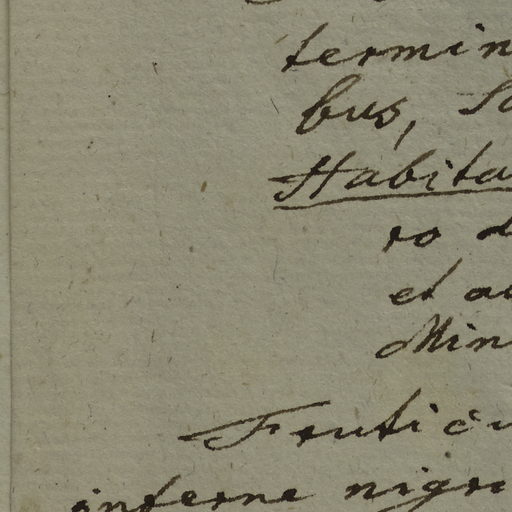 termin
bus,
Habita
ro d
et a
Min
Frutic
inferne nigr